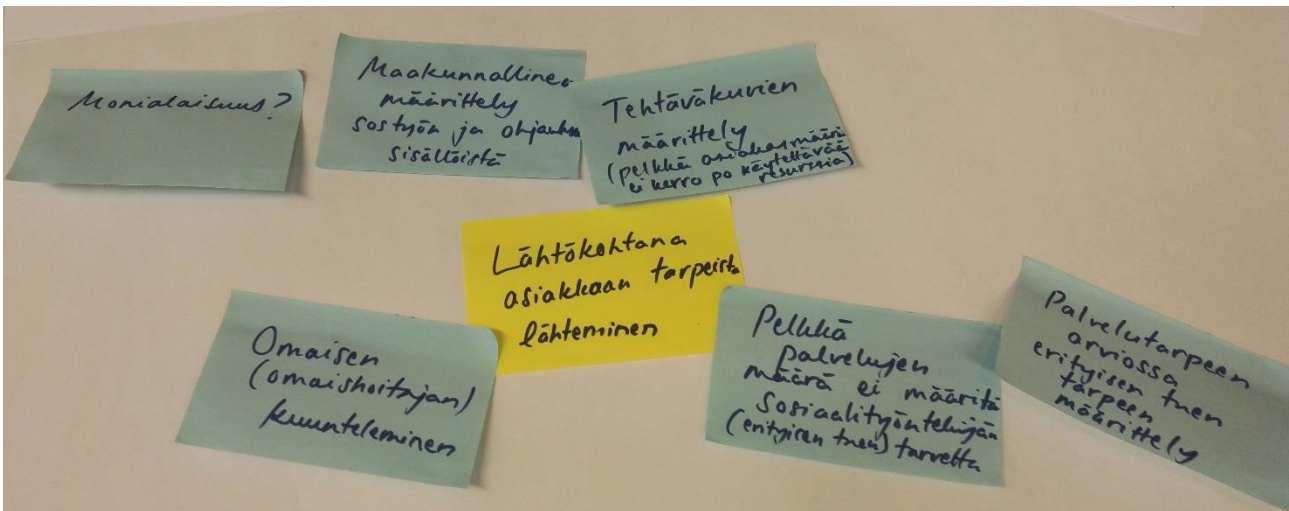 Monialaisuus?
Maakunnallinen
määrittely
sostyön ja ohjauksen
sisältöistä
Tehtäväkuvien
määrittely
(pelkkä asiakasmäärä
ei kerro po käytettävää
resurssia)
Lähtökohtana
asiakkaan tarpeista
lähteminen
Omaisen
(omaishoitajan)
kuunteleminen
Pelkkä
palvelujen
määrä ei määritä
sosiaalityöntekijän
(erityisen tuen) tarvetta
Palvelutarpeen
arviossa
erityisen tuen
tarpeen
määrittely